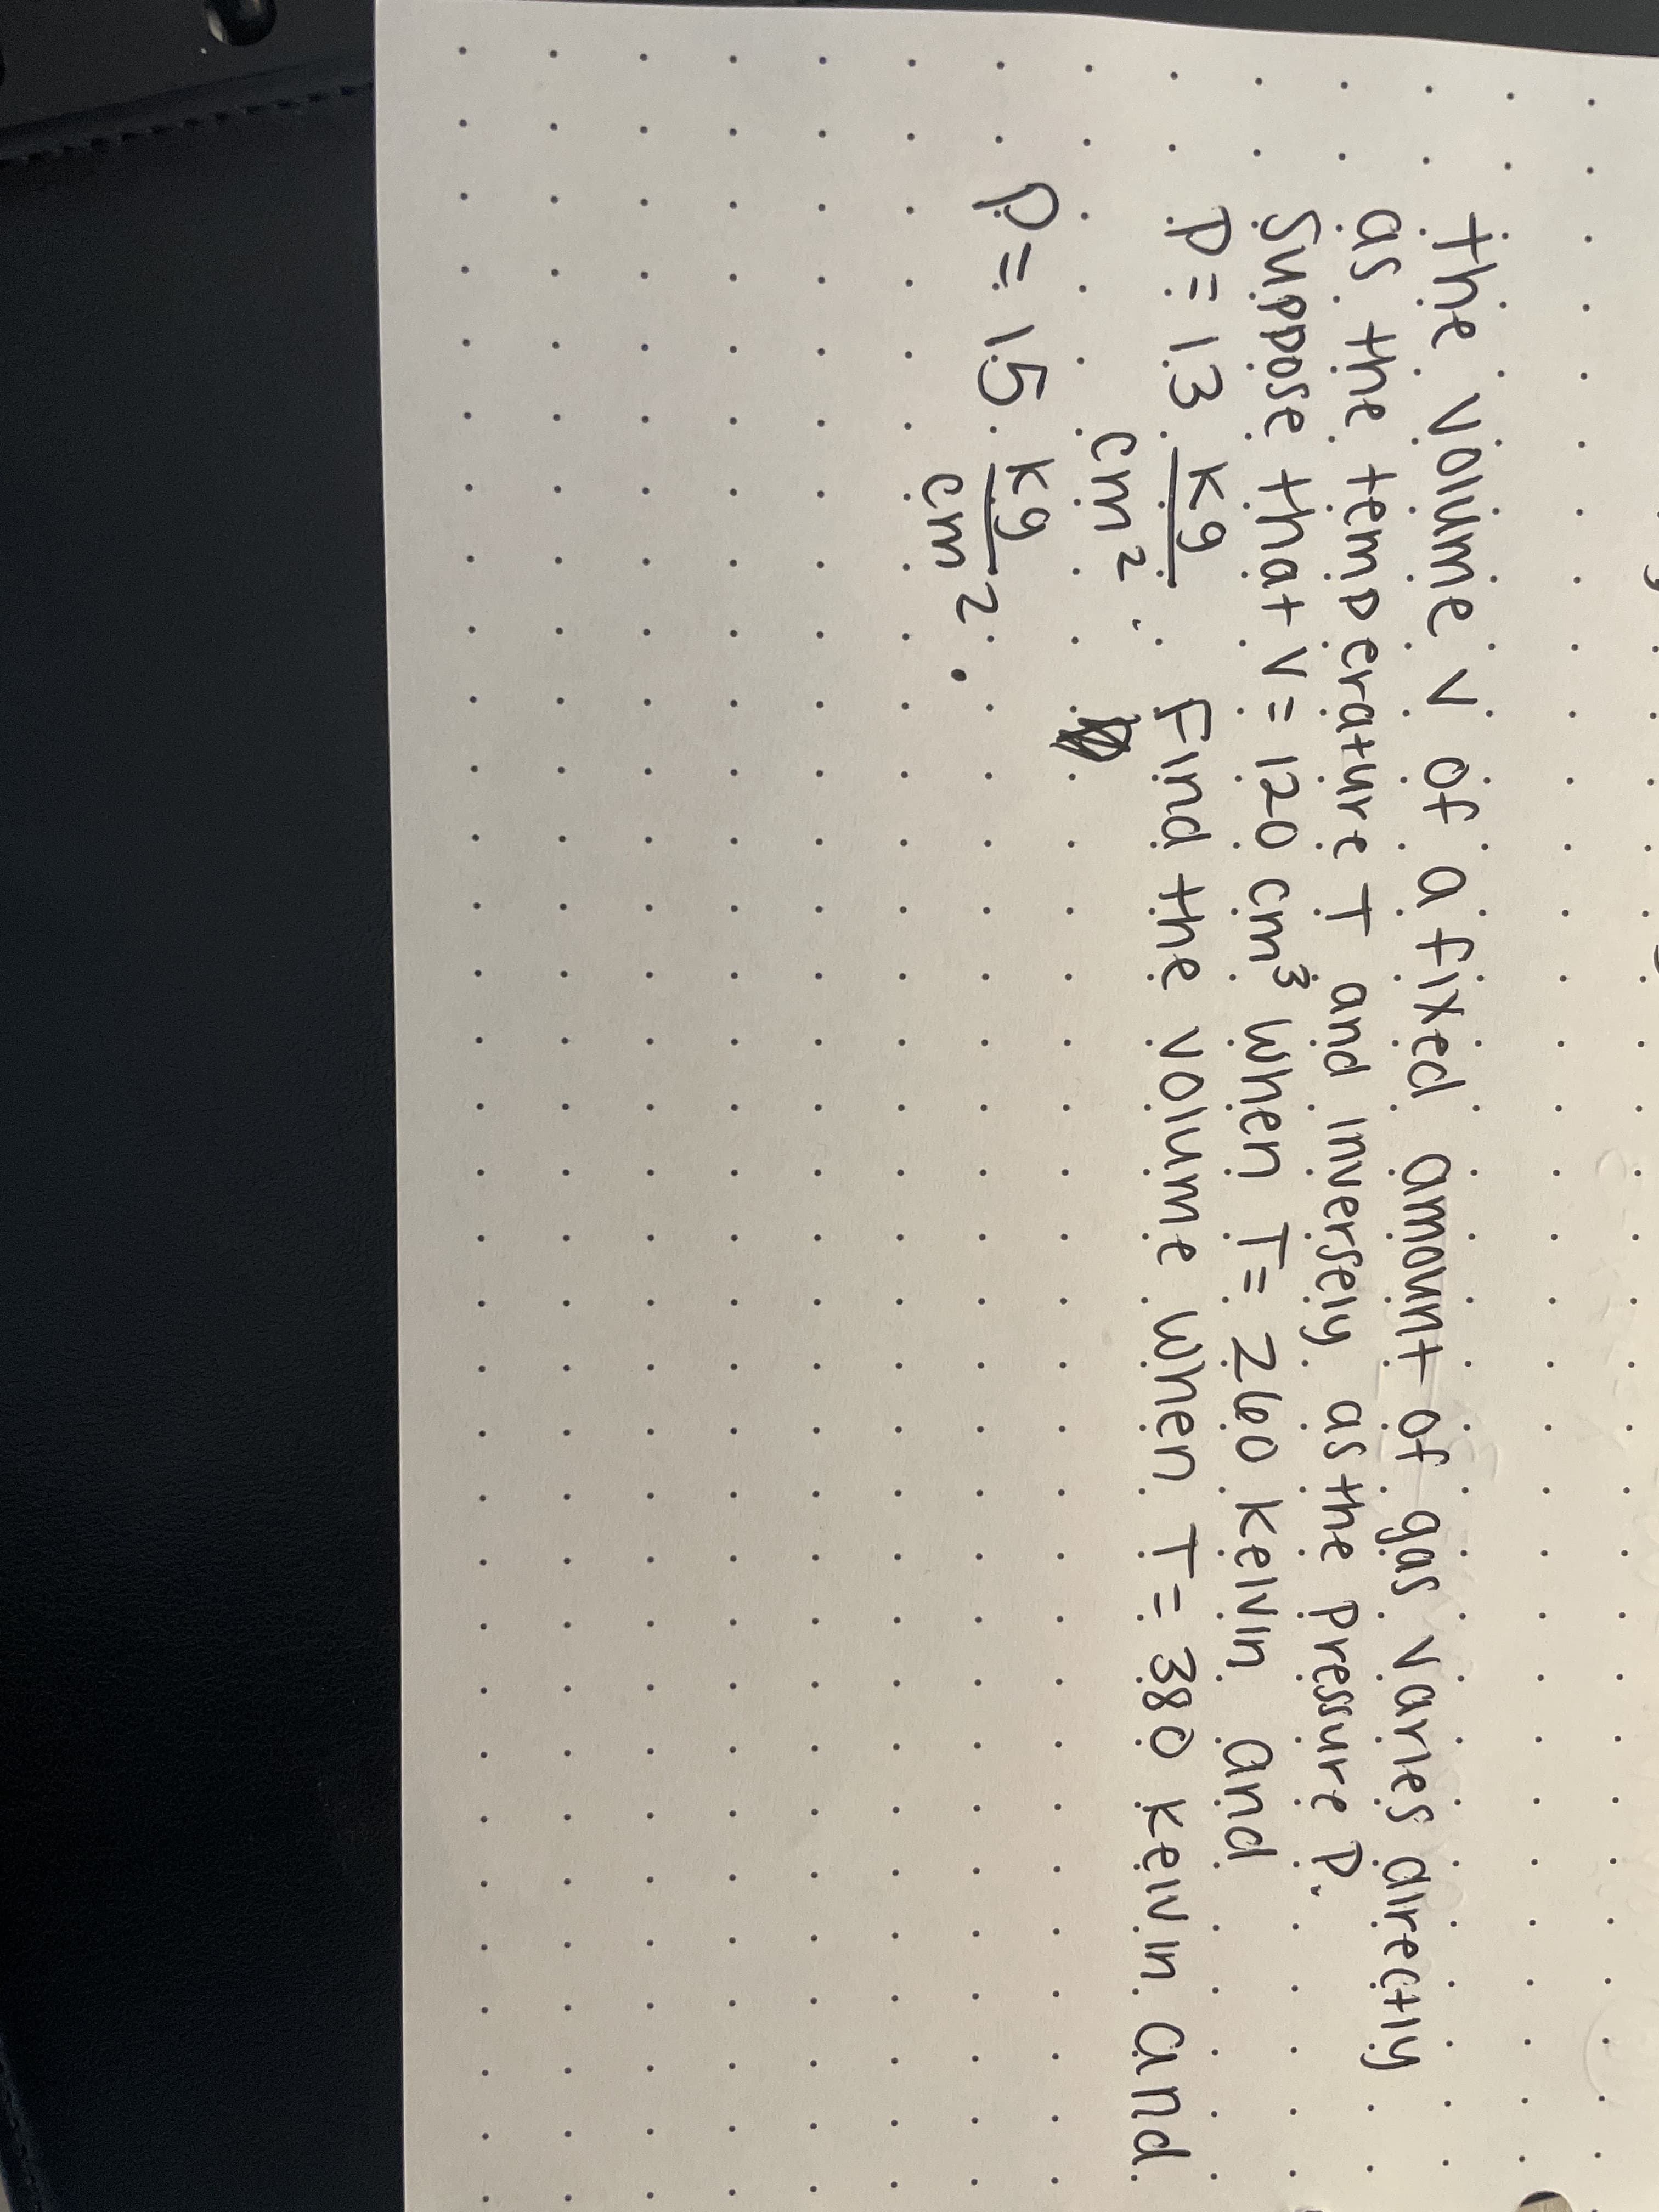 the volume v of a fixed amount of gas varies directly
as the temperature T and inversely as the pressure P.
Suppose that v = 120 cm³ when T = 260 kelvin and
P = 13 kg/cm². Find the volume when T = 380 kelvin and
P = 15 kg/cm².